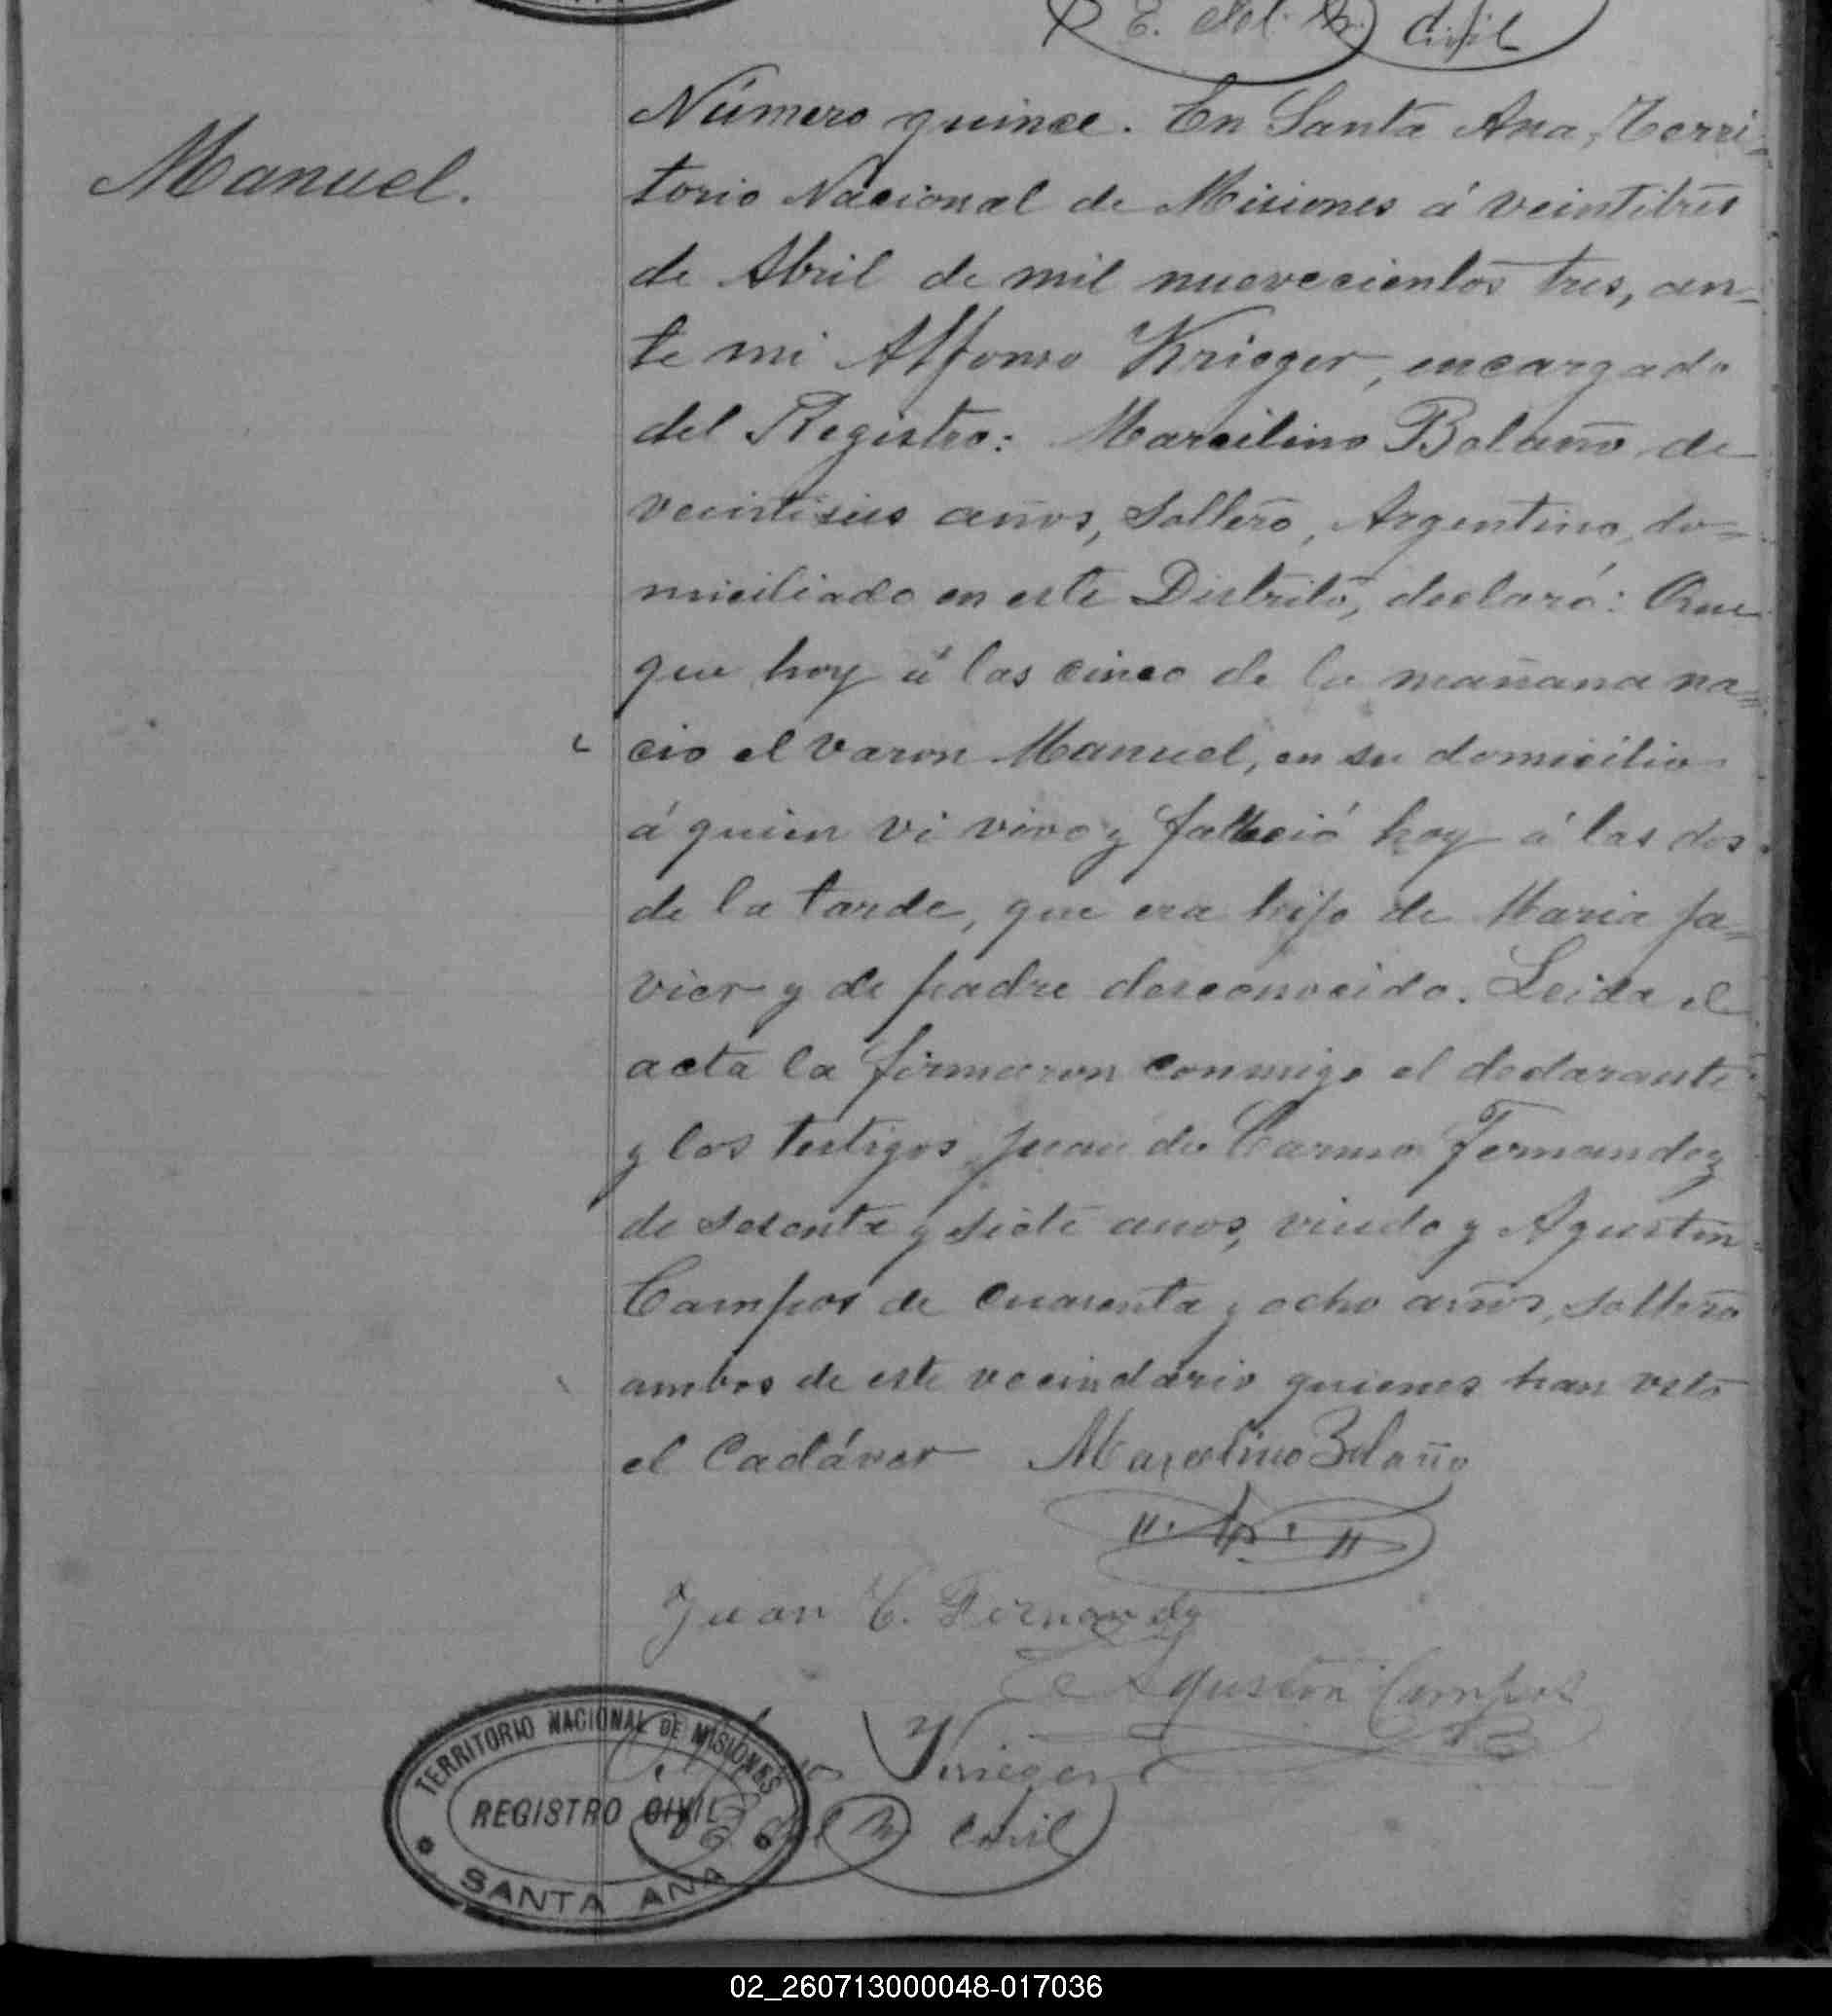 E. del R. Civil
Manuel.
Número quince. En Santa Ana, Terri-
torio Nacional de Misiones á veintitres
de Abril de mil nuevecientos tres, an-
te mi Alfonso Krieger, encargado
del Registro: Marcilino Bolaño, de
veintiseis años, soltero, Argentino, do=
miciliado en este Distrito, declaró: Que
que hoy á las cinco de la mañana na=
cio el varon Manuel, en su domicilio
á quien vi vivo y falleció hoy á las dos
de la tarde, que era hijo de Maria Ja=
vier y de padre desconocido. Leida el
acta la firmaron conmigo el declarante
y los testigos Juan de Carmo Fernandez
de sesenta y siete años, viudo y Agustin
Campos de cuarenta y ocho años, soltero
ambos de este vecindario quienes han visto
el Cadáver Marcelino Bolaño
Juan C. Fernandez
Agustin Campos
Krieger
del R. Civil
TERRITORIO NACIONAL DE MISIONES
REGISTRO CIVIL
SANTA ANA
02_260713000048-017036